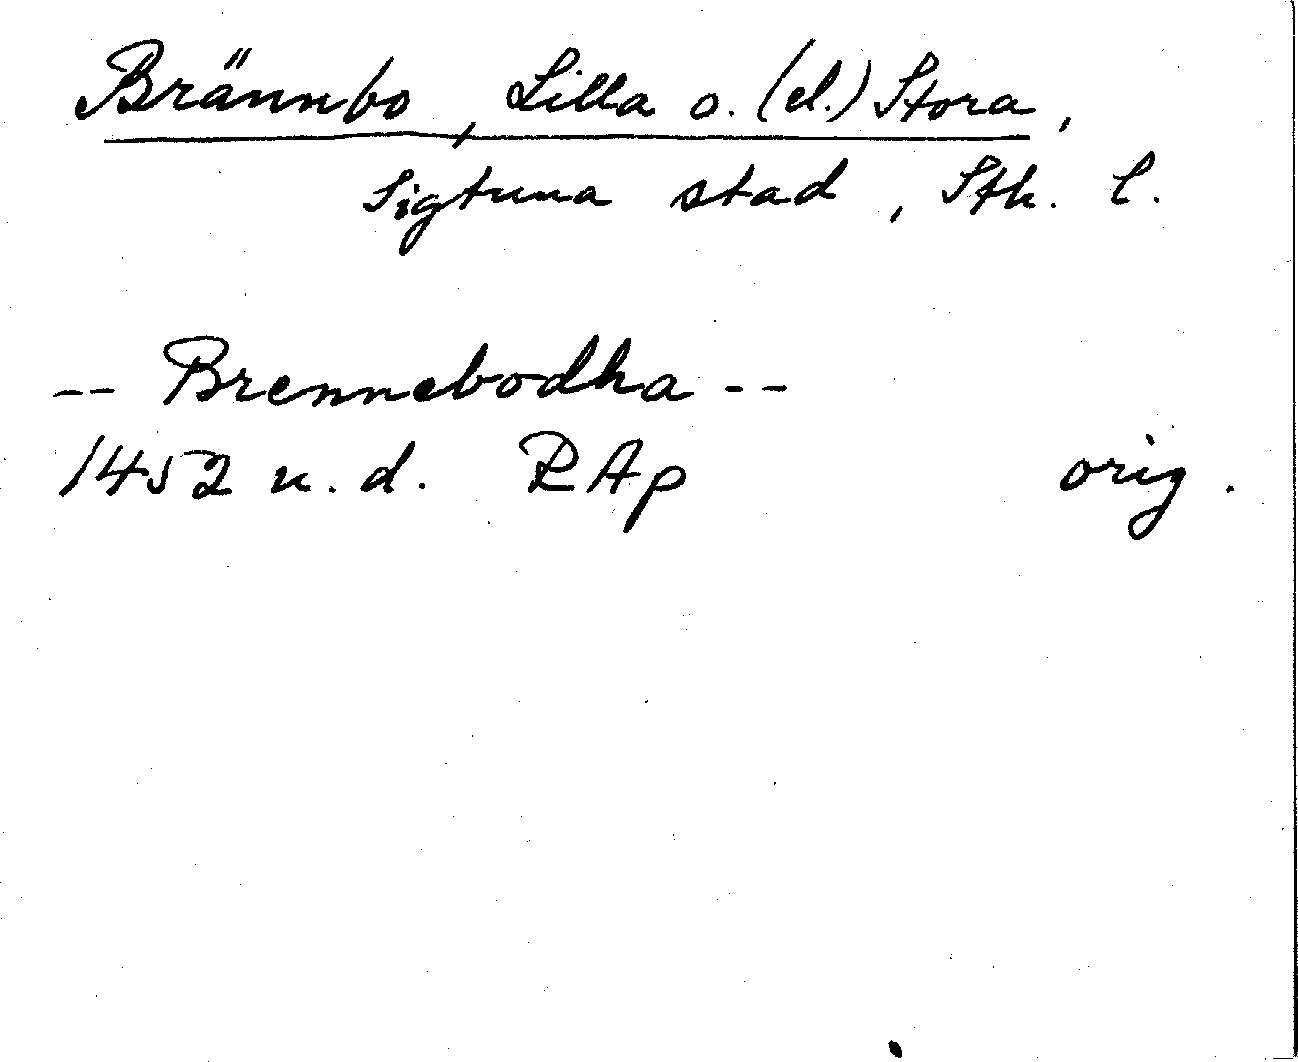 Brännbo, Lilla o. (el.) Stora,
Sigtuna stad, Sth. l.
-- Brennebodha --
1452 u.d. RAp orig.